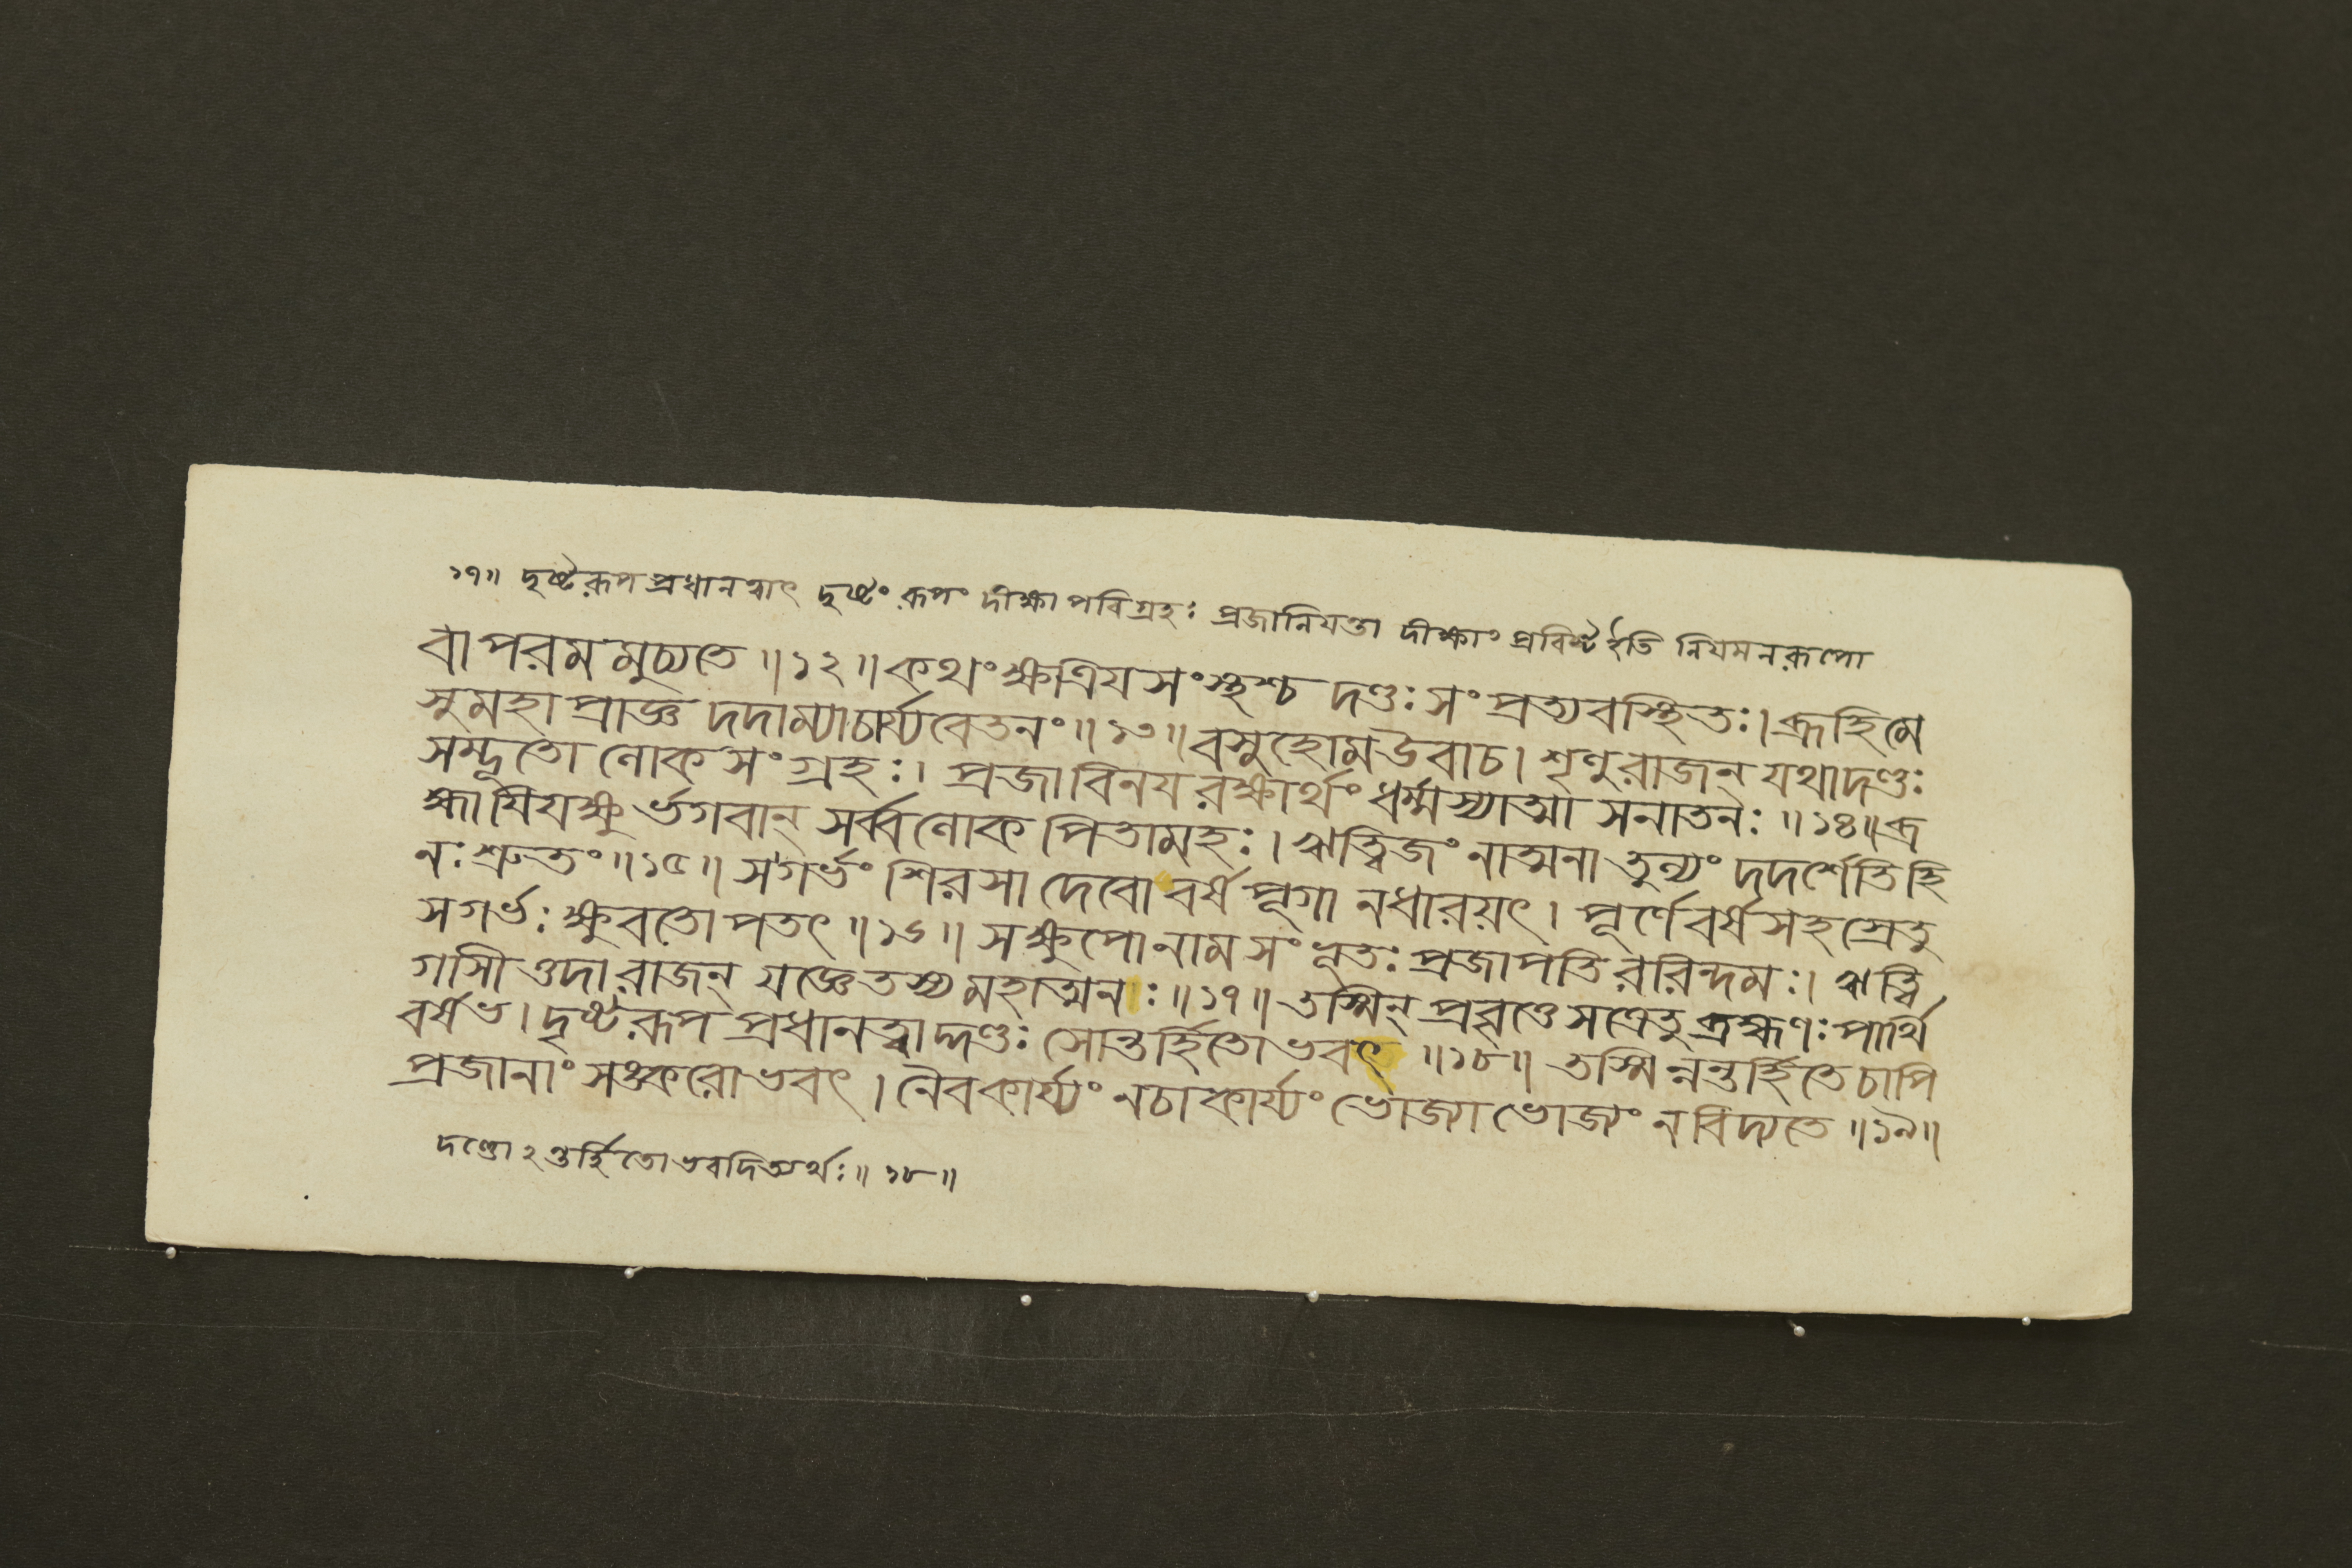 ১৭॥ দৃষ্টরূপপ্রধানত্বাৎ দৃষ্টং রূপং দীক্ষাপরিগ্রহঃ প্রজানিযন্তা দীক্ষাং প্রবিষ্ট ইতি নিযমনরূপো
বাপরমমুচ্যতে ॥১২॥ কথং ক্ষত্রিযসংস্থশ্চ দণ্ডঃ সংপ্রত্যবস্থিতঃ। ব্রূহিমে
সুমহাপ্রাজ্ঞ দদাম্যাচার্য্যবেতনং ॥১৩॥ বসুহোম উবাচ। শৃণুরাজন্ যথাদণ্ডঃ
সম্ভূতো লোকসংগ্রহঃ। প্রজাবিনযরক্ষার্থং ধর্ম্মস্যাত্মা সনাতনঃ ॥১৪॥ ব্র
হ্মাযিযক্ষুর্ভগবান্ সর্ব্বলোকপিতামহঃ। ঋত্বিজং নাত্মনা তুল্যং দদর্শেতিহি
নঃ শ্রুতং ॥১৫॥ সগর্ভং শিরসা দেবো বর্ষপূগানধারয়ৎ। পূর্ণে বর্ষসহস্রেতু
সগর্ভঃ ক্ষুবতোপতৎ ॥১৬॥ সক্ষুপোনাম সংভূতঃ প্রজাপতিররিন্দমঃ। ঋত্বি
গাসীত্তদা রাজন্ যজ্ঞে তস্য মহাত্মনঃ ॥১৭॥ তস্মিন্ প্রবৃত্তে সত্রেতু ব্রহ্মণঃ পার্থি
বর্ষভ। দৃষ্টরূপপ্রধানত্বাদ্দণ্ডঃ সোন্তর্হিতোভবৎ ॥১৮॥ তস্মিন্নন্তর্হিতে চাপি
প্রজানাং সঙ্করোভবৎ। নৈবকার্য্যং নচাকার্য্যং ভোজ্যাভোজ্যং নবিদ্যতে ॥১৯॥
দণ্ডোঽন্তর্হিতোভবদিত্যর্থঃ॥ ১৮॥